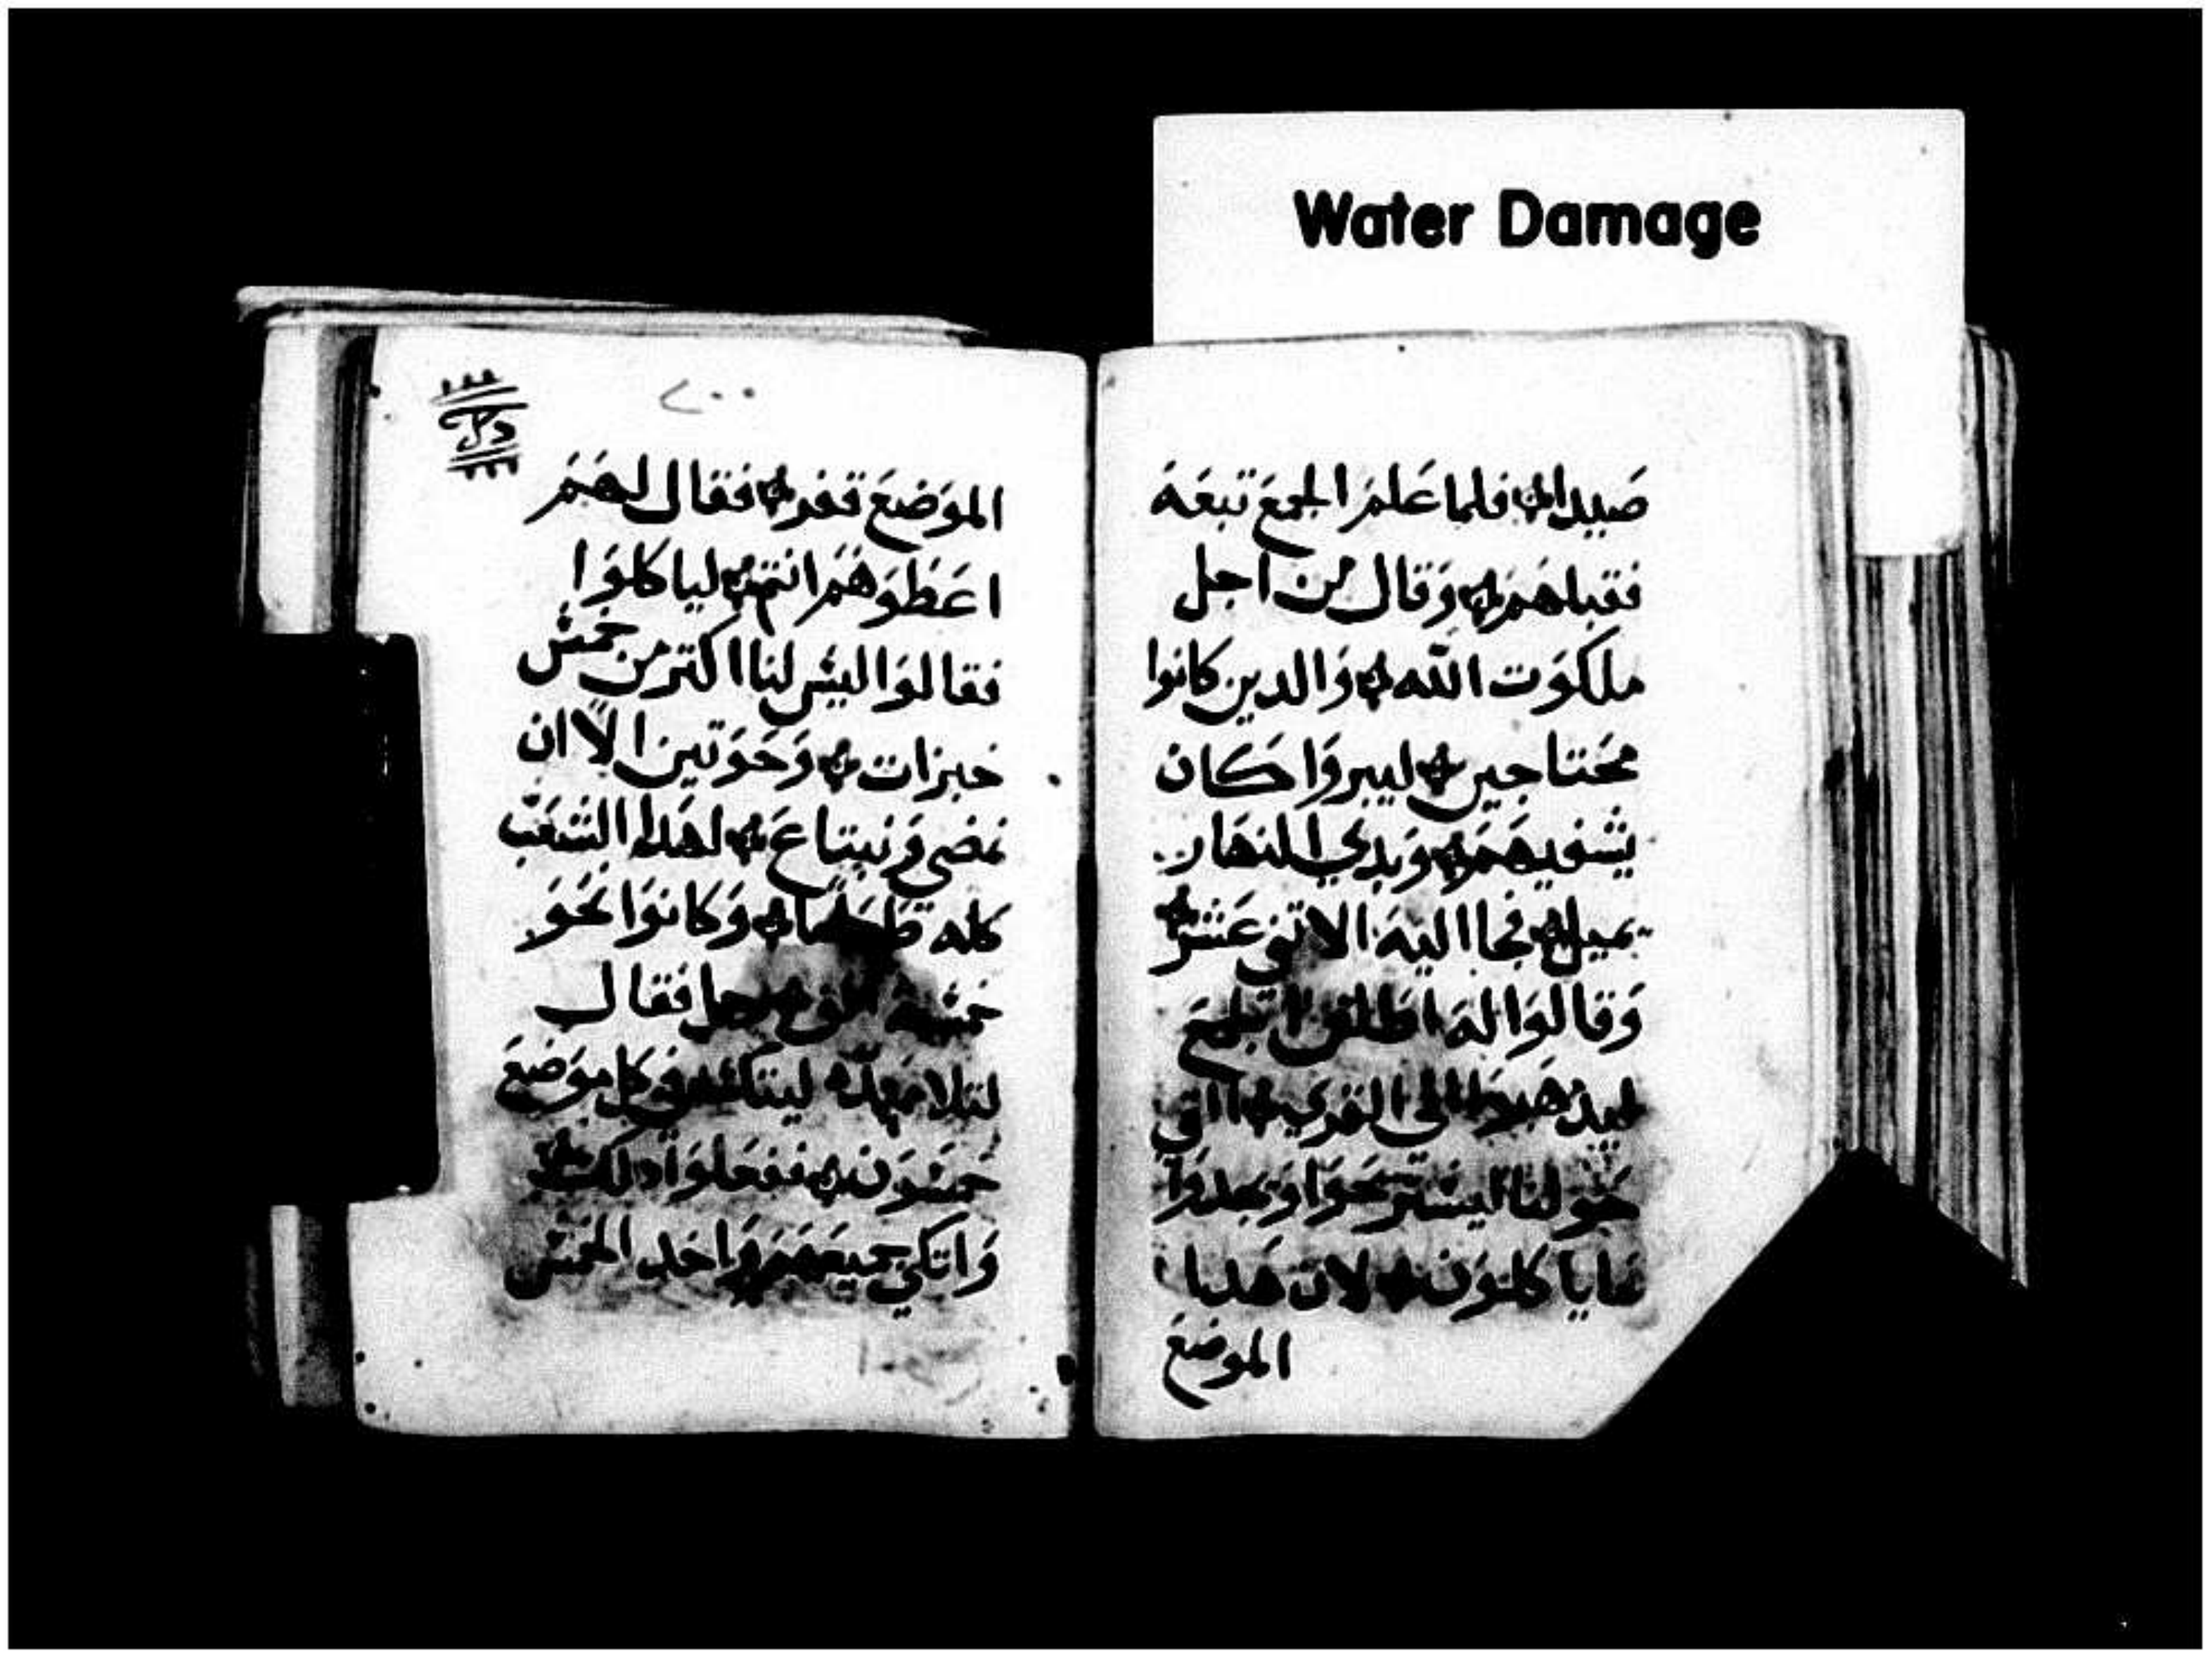 Water Damage
صيدا فلما علم الجمع تبعه
فقبلهم وقال من اجل
ملكوت الله والدين كانوا
محتاجين ليبروا كان
يشفيهم وبدي النهار
يميل فجا اليه الاتني عشر
وقالوا له اطلق الجمع
ليدهبوا الى القري التي
حولنا ليستريحوا ويجدوا
ماياكلون لان هدا
الموضع
٢٠٠
الموضع قفر فقال لهم
اعطوهم انتم لياكلوا
فقالوا ليس لنا اكتر من خمس
خبزات وحوتين الا ان
نمضي ونبتاع لهدا الشعب
كله طعاما وكانوا نحو
خمسة الف رجل فقال
لتلاميده ليتكئ في كل موضع
خمسون ففعلوا دلك
واتكي جميعهم واخد الخمس